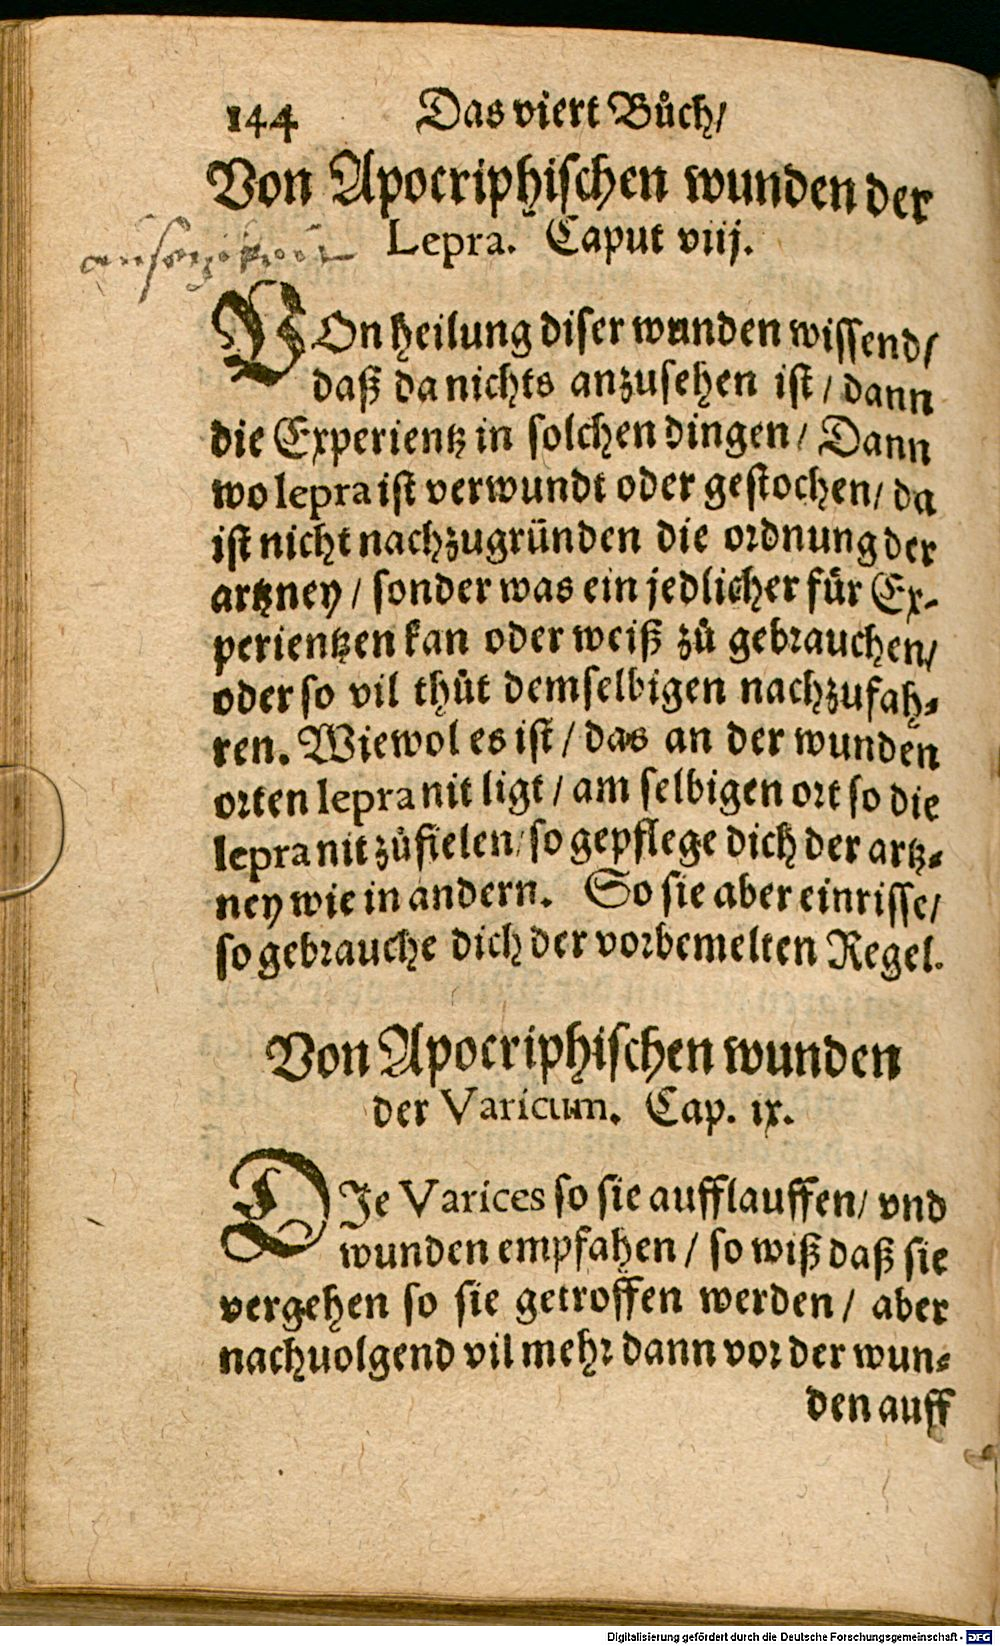 144 Das viert Bůch/
Von Apocriphischen wunden der
Lepra. Caput viij.
VOn heilung diser wunden wissend/
daß da nichts anzusehen ist / dann
die Experientz in solchen dingen / Dann
wo lepra ist verwundt oder gestochen/ da
ist nicht nachzugründen die ordnung der
artzney / sonder was ein jedlicher für Ex-
perientzen kan oder weiß zů gebrauchen/
oder so vil thůt demselbigen nachzufah-
ren. Wiewol es ist / das an der wunden
orten lepra nit ligt / am selbigen ort so die
lepra nit zůfielen/ so gepflege dich der artz-
ney wie in andern. So sie aber einrisse/
so gebrauche dich der vorbemelten Regel.
Von Apocriphischen wunden
der Varicum. Cap. ix.
DIe Varices so sie aufflauffen/ vnd
wunden empfahen / so wiß daß sie
vergehen so sie getroffen werden / aber
nachuolgend vil mehr dann vor der wun-
den auff
Digitalisierung gefördert durch die Deutsche Forschungsgemeinschaft - DFG